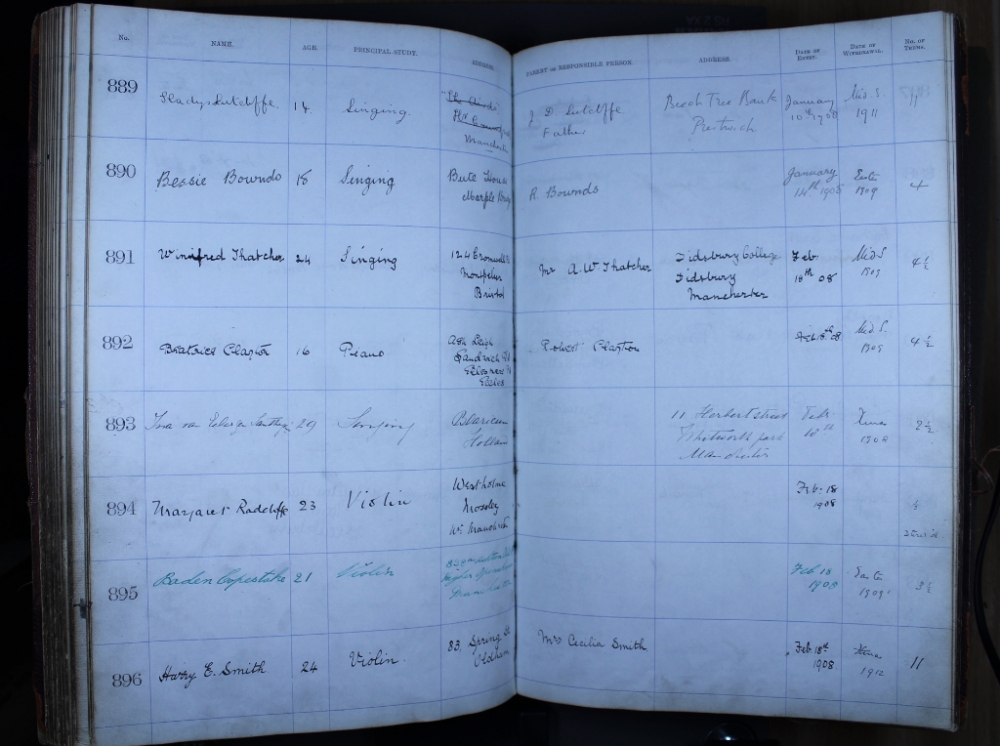 No.
NAME.
AGE.
PRINCIPAL STUDY.
ADDRESS.
PARENT OR RESPONSIBLE PERSON.
ADDRESS
DATE OF ENTRY.
DATE OF WITHDRAWAL.
NO. OF TERMS.
889
Gladys Sutcliffe.
14
Singing.
J. D. Sutcliffe
Father
Beech Tree Bank
Prestwich
January
10th 1908
Mid S.
1911
11
890
Bessie Bownds
18
Singing
Bute House
Marple
R. Bownds
January
14th 1908
Easter
1909
4
891
Winifred Thatcher
24
Singing
124
Montpelier
Bristol
Mr A. W Thatcher
Didsbury College
Didsbury
Manchester
Feb
18th 08
Mid S
1909
4 ½
892
Beatrice Clayton
16
Piano
Ash Leigh
Sandwich Rd
Ellesmere Pk
Eccles
Robert Clayton
Feb 18th 08
Mid S.
1909
4 ½
893
29
Singing
Blaricum
Holland
11 Herbert street
Whitworth park
Manchester
Feb
18th
Xmas
1908
2 ½
894
Margaret Radcliffe
23
Violin
Westholme
Mossley
Nr Manchester
Feb. 18
1908
895
Baden Copestake
21
Violin
Manchester
Feb 18
1908
Easter
1909
3 ½
896
Harry E. Smith
24
Violin.
83. Spring St
Oldham
Mrs Cecilia Smith
Feb 18th
1908
Xmas
1912
11